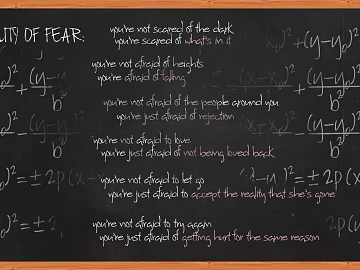 LITY OF FEAR:
you're not scared of the dark
you're scared of what's in it
you're not afraid of heights
you're afraid of falling
you're not afraid of the people around you
you're just afraid of rejection
you're not afraid to love
you're just afraid of not being loved back
you're not afraid to let go
you're just afraid to accept the reality that she's gone
you're not afraid to try again
you're just afraid of getting hurt for the same reason